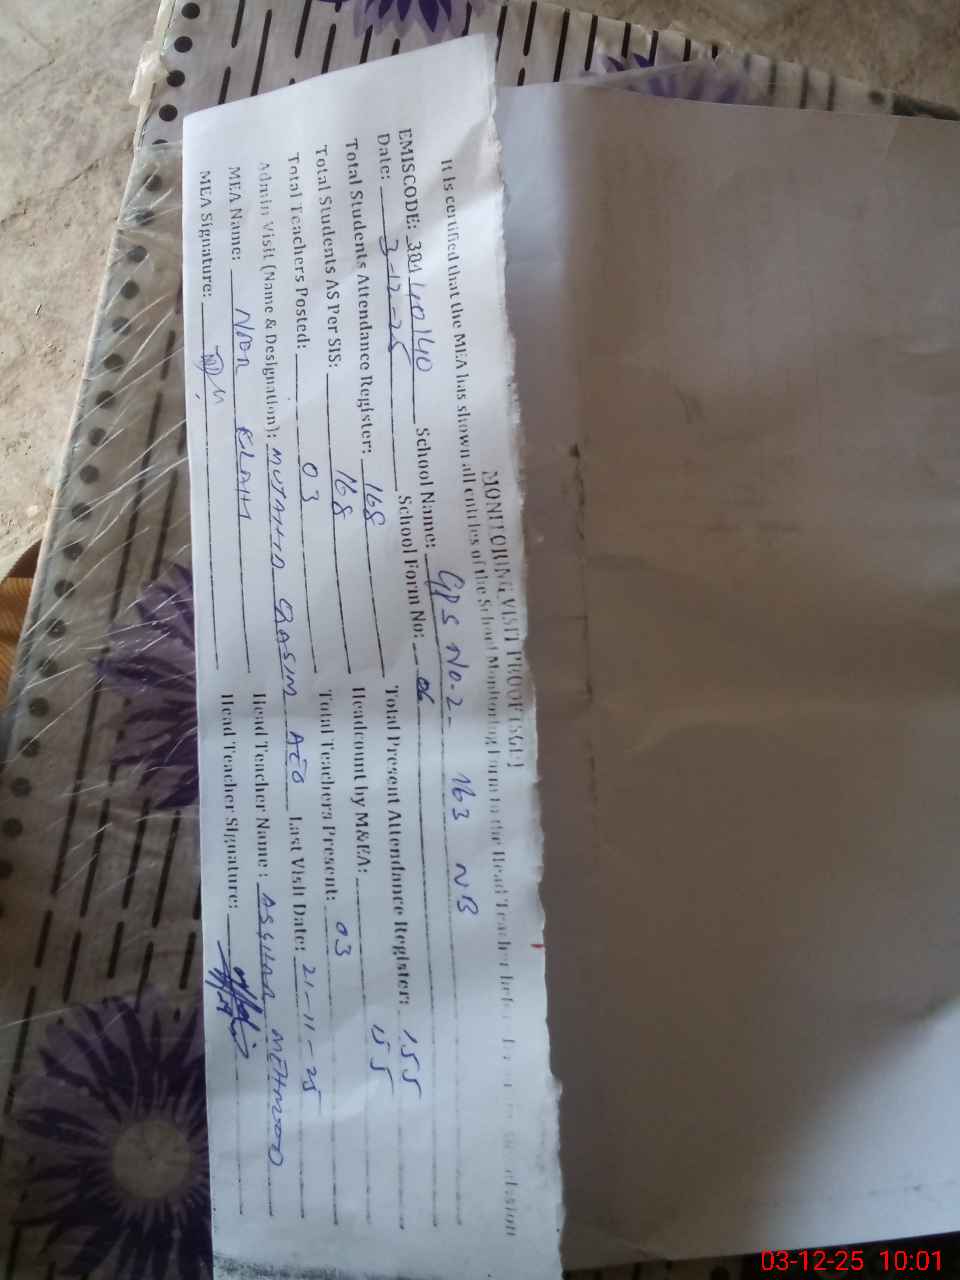 MONITORING VISIT PROOF
It is certified that the MEA has shown all entries of the School Monitoring Form to the Head Teacher before
EMISCODE: School Name: GPS No-2- 163 NB
Date: 3-12-25 School Form No: 06
Total Students Attendance Register: 168 Total Present Attendance Register: 155
Total Students AS Per SIS: 168 Headcount by M&EA: 155
Total Teachers Posted: 03 Total Teachers Present: 03
Admin Visit (Name & Designation): MUJAHID QASIM AEO Last Visit Date: 21-11-25
MEA Name: NOOR ELAHI Head Teacher Name: ASGHAR MEHMOOD
MEA Signature: Head Teacher Signature:
03-12-25 10:01